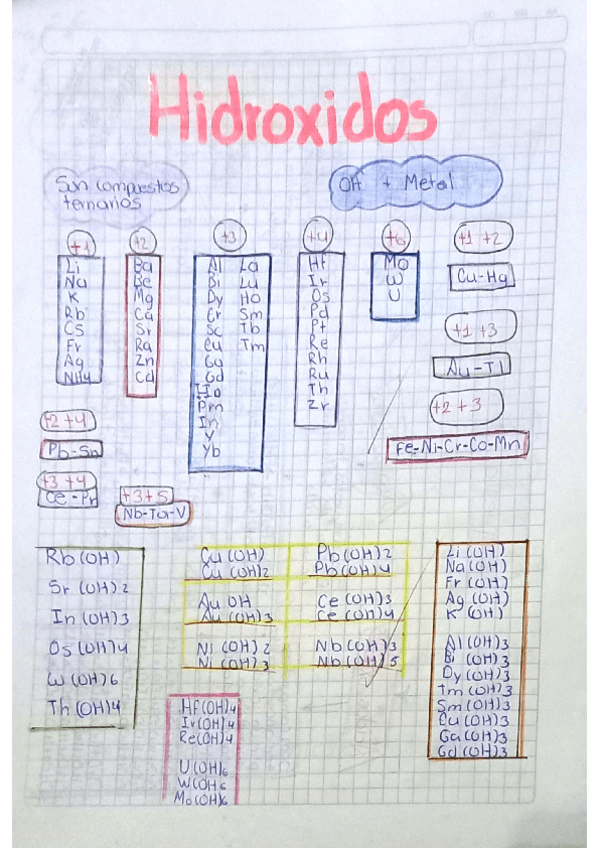 Hidroxidos
Son compuestos
ternarios
OH + Metal
+1
Li
Na
K
Rb
Cs
Fr
Ag
NH4
+2
Ba
Be
Mg
Ca
Sr
Ra
Zn
Cd
+3
Al La
Bi Lu
Dy Ho
Er Sm
Sc Tb
Eu Tm
Ga
Gd
Ho
Pm
In
Y
Yb
+4
Hf
Ir
Os
Pd
Pt
Re
Rh
Ru
Th
Zr
+6
Mo
W
U
+1 +2
Cu-Hg
+1 +3
Au-Tl
+2 +3
Fe-Ni-Cr-Co-Mn
+2 +4
Pb-Sn
+3 +4
Ce-Pr
+3+5
Nb-Ta-V
Rb(OH)
Sr (OH)2
In (OH)3
Os(OH)4
W(OH)6
Th(OH)4
Cu(OH)
Cu(OH)2
Au OH
Au (OH)3
Ni (OH)2
Ni (OH)3
Pb(OH)2
Pb(OH)4
Ce(OH)3
Ce(OH)4
Nb(OH)3
Nb(OH)5
Hf(OH)4
Ir(OH)4
Re(OH)4
U(OH)6
W(OH6
Mo(OH)6
Li (OH)
Na(OH)
Fr (OH)
Ag (OH)
K (OH)
Al(OH)3
Bi (OH)3
Dy(OH)3
Tm(OH)3
Sm(OH)3
Eu(OH)3
Ga(OH)3
Gd(OH)3